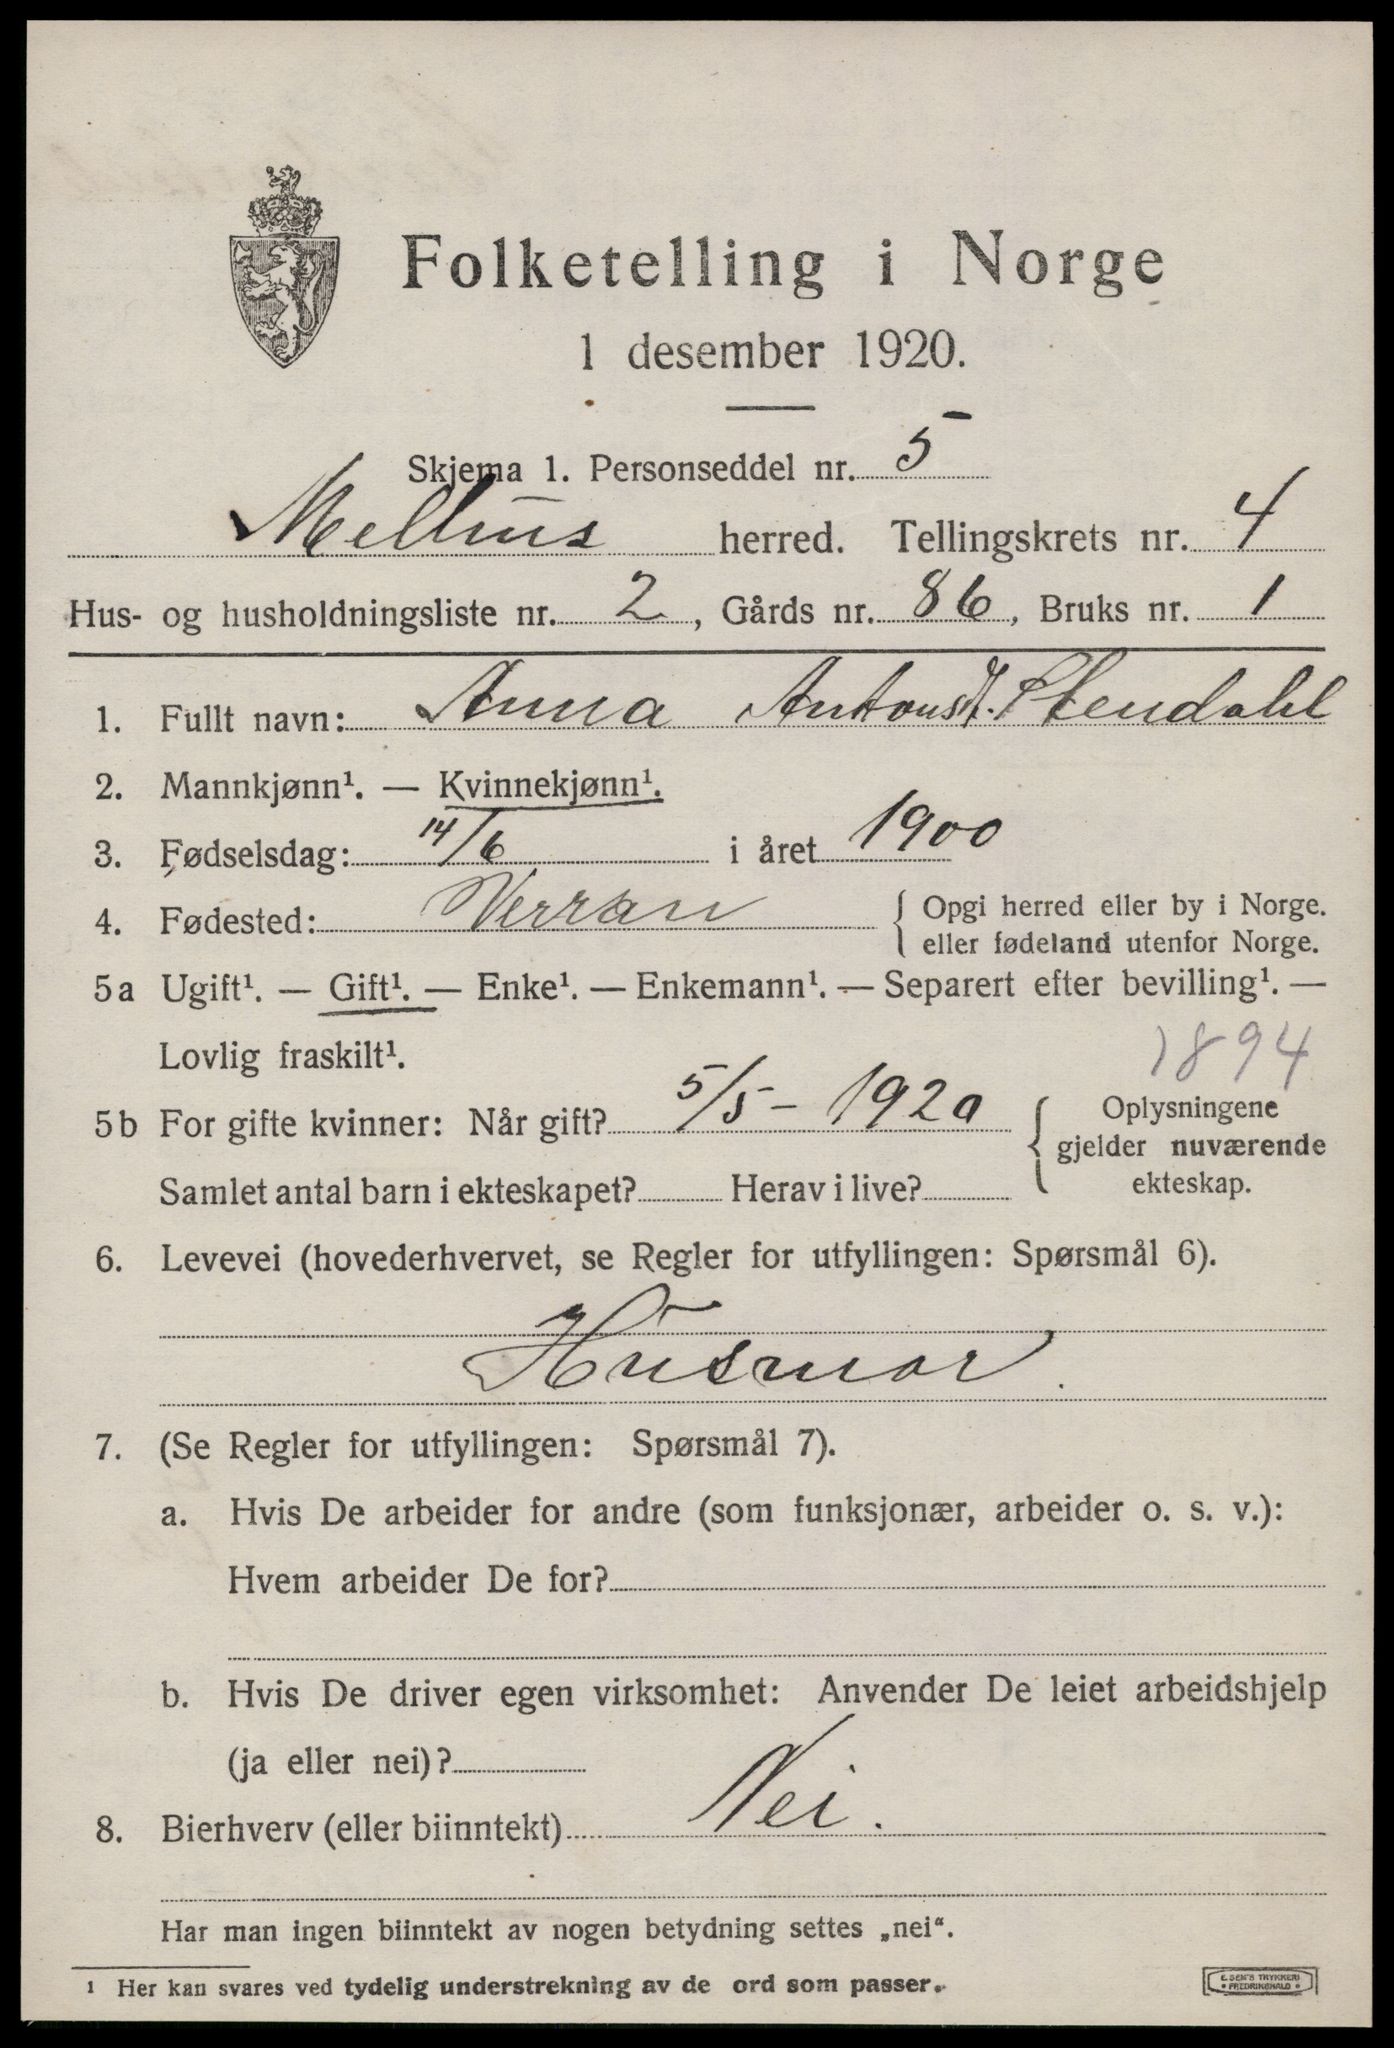 Folketelling i Norge
1 desember 1920.
Skjema 1. Personseddel nr. 5
Melhus herred. Tellingskrets nr. 4
Hus- og husholdningsliste nr. 2, Gårds nr. 86, Bruks nr. 1
1. Fullt navn: Anna Antonsdt. Stendahl
2. Mannkjønn¹. — Kvinnekjønn¹.
3. Fødselsdag: 14/6 i året 1900
4. Fødested: Verran { Opgi herred eller by i Norge.
eller fødeland utenfor Norge.
5a Ugift¹. — Gift¹. — Enke¹. — Enkemann¹. — Separert efter bevilling¹. —
Lovlig fraskilt¹.
1894
5b For gifte kvinner: Når gift? 5/5 – 1920 { Oplysningene
gjelder nuværende
ekteskap.
Samlet antal barn i ekteskapet? Herav i live?
6. Levevei (hovederhvervet, se Regler for utfyllingen: Spørsmål 6).
Husmor.
7. (Se Regler for utfyllingen: Spørsmål 7).
a. Hvis De arbeider for andre (som funksjonær, arbeider o. s. v.):
Hvem arbeider De for?
b. Hvis De driver egen virksomhet: Anvender De leiet arbeidshjelp
(ja eller nei)?
8. Bierhverv (eller biinntekt) Nei.
Har man ingen biinntekt av nogen betydning settes „nei“.
¹ Her kan svares ved tydelig understrekning av de ord som passer.
TRYKKERI
FREDRIKSHALD